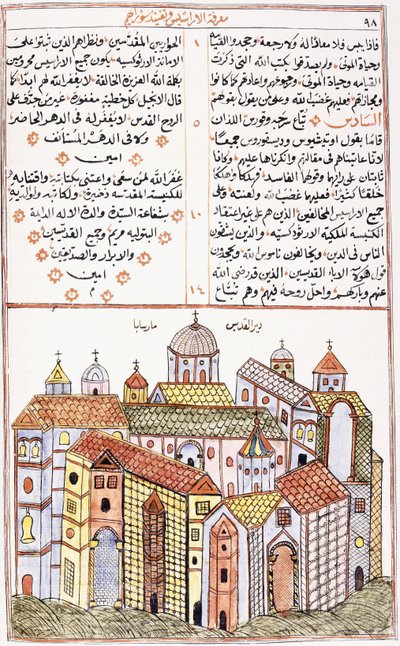 ٩٨
معرفة الاراسيس وتفنيد
معادًا له ولا رجعة وجحدوا القيامة
وحياة الموتى ولم يصدقوا بكتب الله التي ذكرت
القيامه وحياة الموتى ورجوعهم واعادتهم كما كانوا
ومجازاهم فعليهم غضب الله وعلى من يقول بقولهم
السادس تباع وفورس اللذان
قاما بقول جميعًا
لانا عاتبناهم في مقالتهم وانكرناها عليهم وكانا
ثابتان على رايها وقولها الفاسد فهلكا واهلكا
خلقًا كثيرًا فعليهما غضب الله ولعنته وعلى
جميع الاراسيس المخالفين الذين هم على غير اعتقاد
الكنيسة الملكية الارثوذكسية والذين يشقون
الناس في الدين ويخالفون ناموس الله ويجحدون
قول هولاء الاباء القديسين الذين قد رضي الله
عنهم وباركهم واحل روحه فيهم وهم تباع
١
٥
١٠
١٤
الحواريين المقدسين ونظراهم الذين ثبتوا على
الامانة الارثوذكسيه يكون جميع الاراسيس محرومين
بكلمة الله العزيزة الخالقة لا يغفر الله لهم ابدًا كما
قال الانجيل كل خطية مغفورة على
الروح القدس لا يغفر له في الدهر الحاضر
ولا في الدهر المستانف
امين
غفر الله لمن سعى واعتنى بكتابة واقتنايه
للكنيسة المقدسه ذخيرة ولكاتبه ولوالديه
بشفاعة السيدة والدة الاله الدايمة
البتوليه مريم وجميع القديسين
والابرار والصديقين
امين
م
دير القديس مارسابا